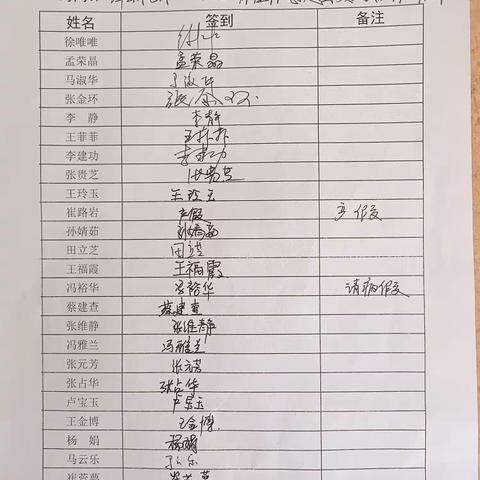 姓名 签到 备注
徐唯唯
孟荣晶 孟荣晶
马淑华
张金环
李 静 李静
王菲菲
李建功 李建功
张贵芝
王玲玉 王玲玉
崔路岩 产假 产假
孙婧茹 孙婧茹
田立芝 田立芝
王福霞 王福霞
冯裕华 冯裕华 请病假
蔡建查 蔡建查
张维静 张维静
冯雅兰 冯雅兰
张元芳 张元芳
张占华 张占华
卢宝玉 卢宝玉
王金博 王金博
杨 娟 杨娟
马云乐
崔蕊要